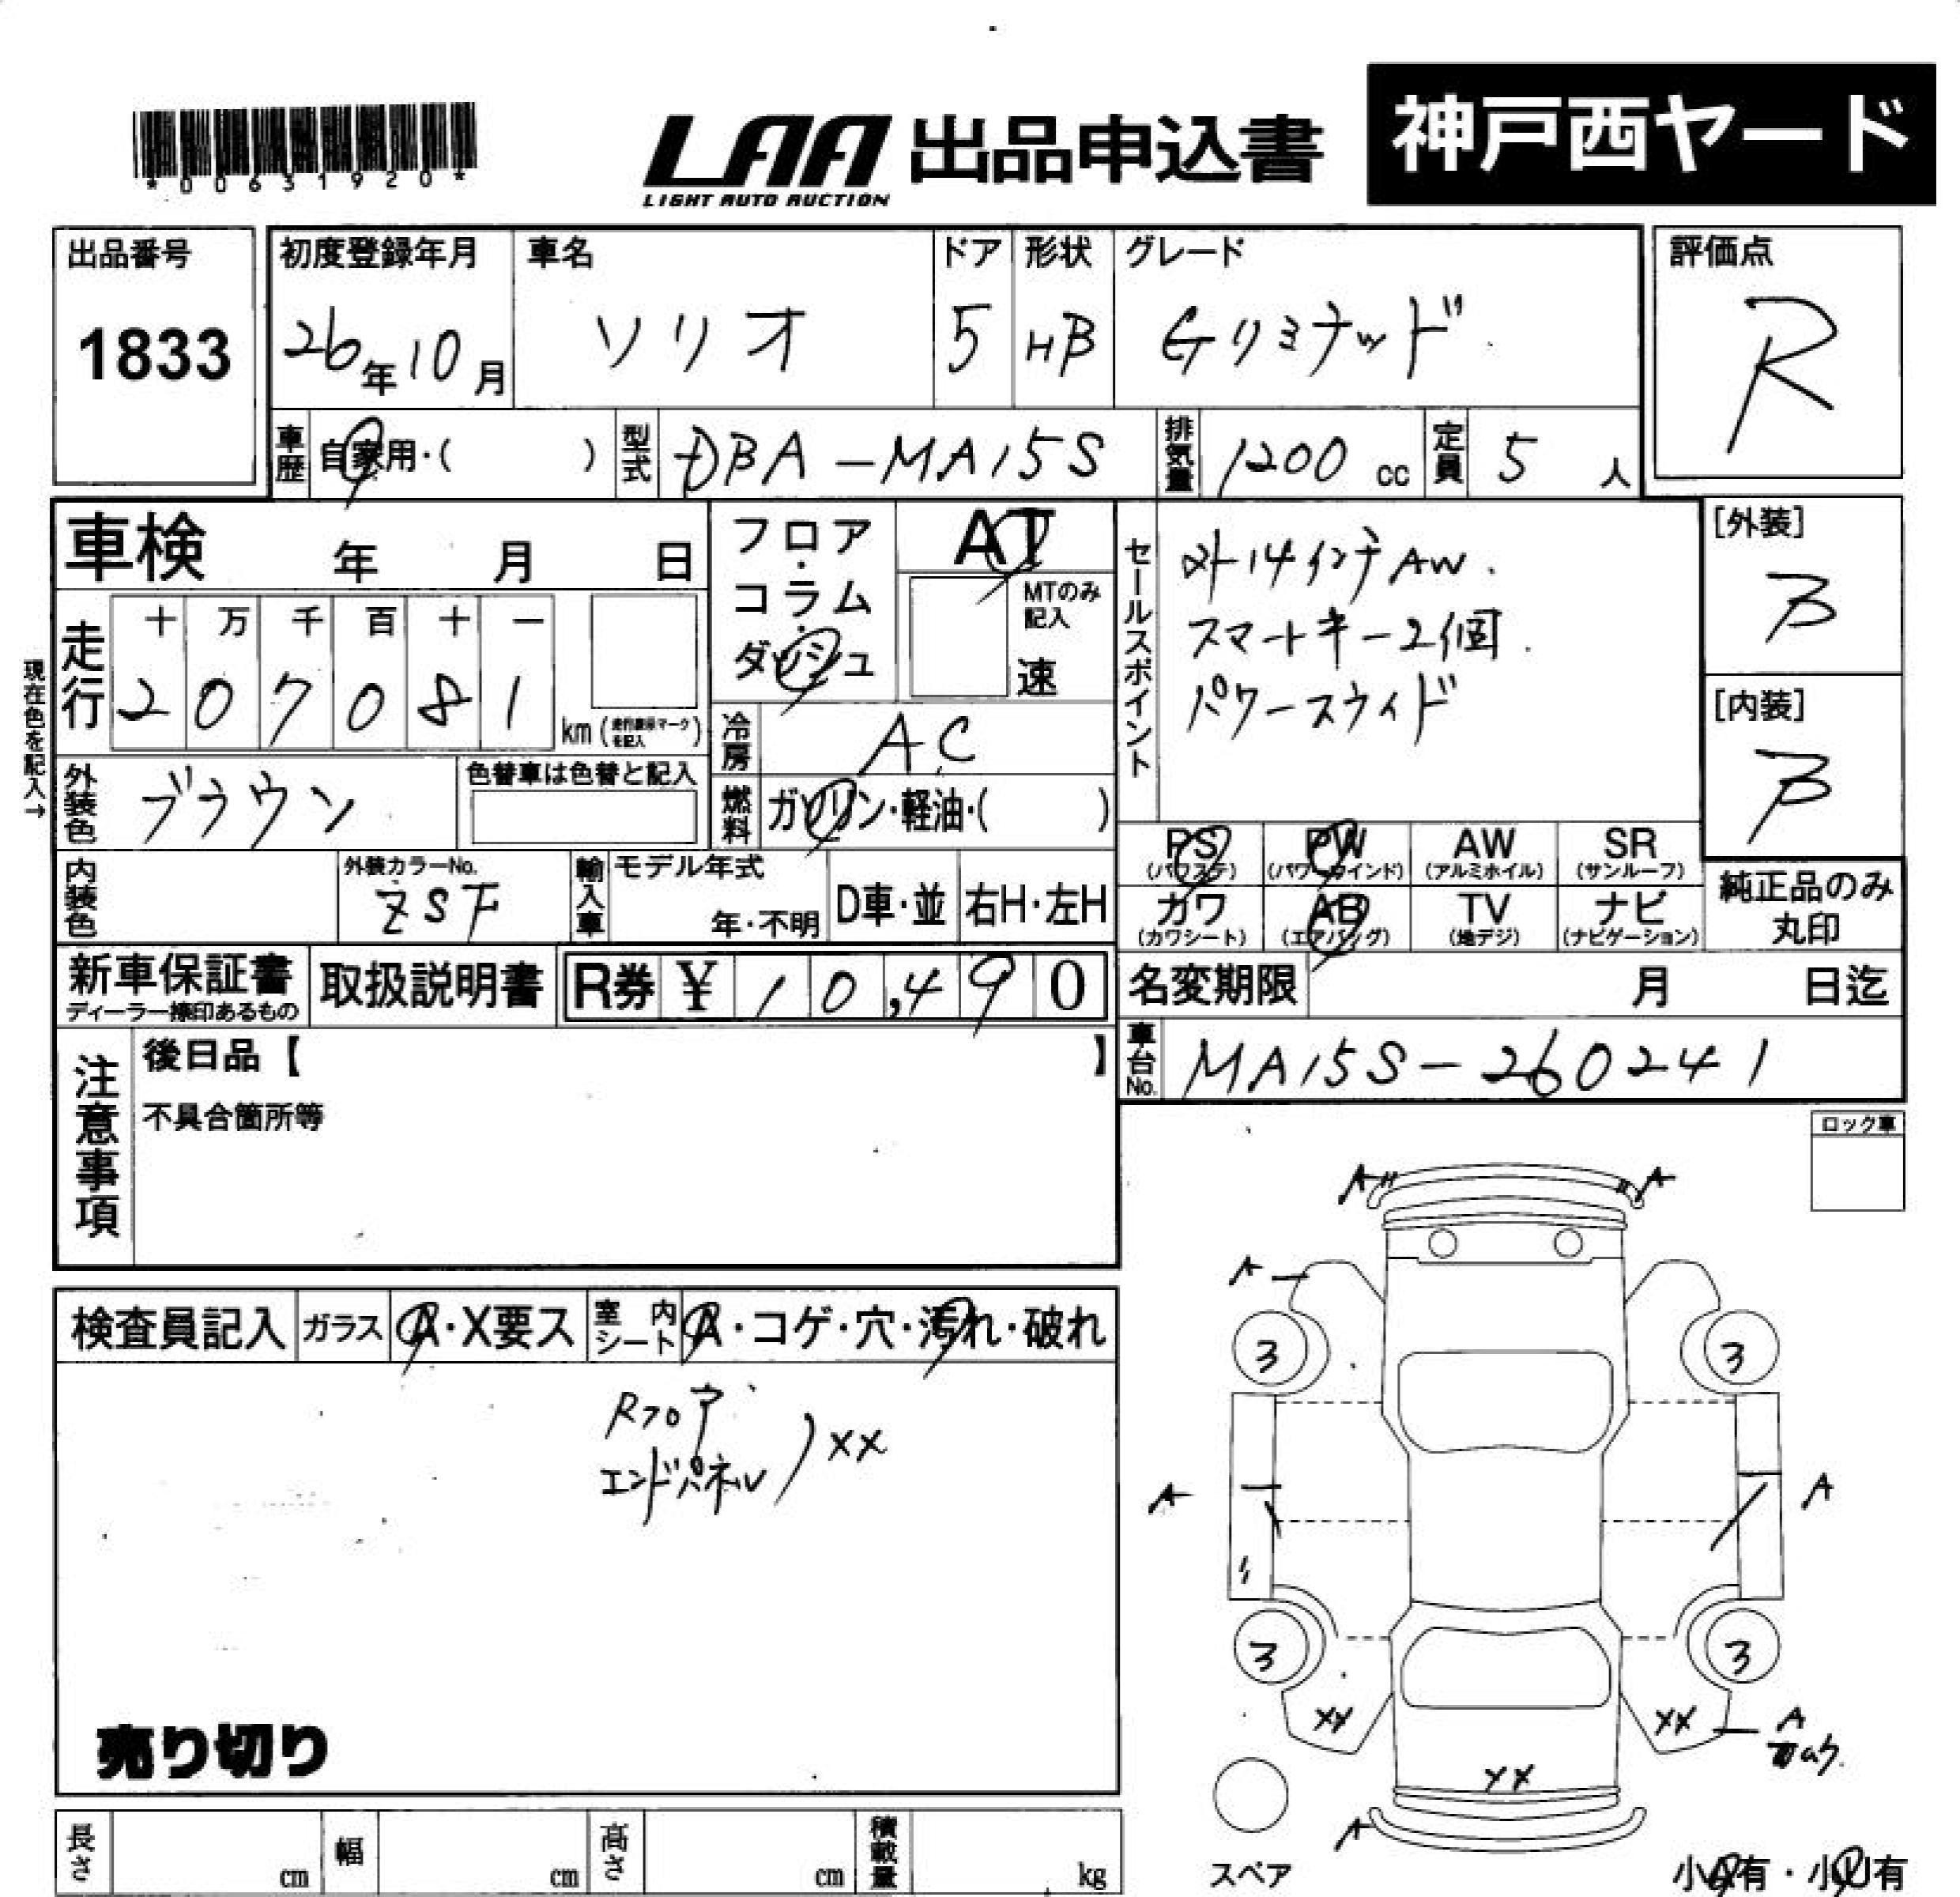 *00631920*
LAA 出品申込書
LIGHT AUTO AUCTION
神戸西ヤード
出品番号
1833
初度登録年月
26年10月
車名
ソリオ
ドア
5
形状
HB
グレード
Gリミテッド
評価点
R
車歴 自家用・( )
型式 DBA-MA15S
排気量 1200 cc
定員 5 人
車検 年 月 日
フロア・コラム・ダッシュ
AT
MTのみ記入
速
セールスポイント
外14インチAW.
スマートキー2個.
パワースライド
[外装]
B
[内装]
B
現在色を記入→
走行
十 万 千 百 十 一
2 0 7 0 8 1
km (走行表示マークを記入)
冷房 AC
外装色 ブラウン
色替車は色替と記入
燃料 ガソリン・軽油・( )
PS (パワステ)
PW (パワーウインド)
AW (アルミホイル)
SR (サンルーフ)
カワ (カワシート)
AB (エアバッグ)
TV (地デジ)
ナビ (ナビゲーション)
純正品のみ
丸印
内装色
外装カラーNo.
ZSF
輸入車
モデル年式
年・不明
D車・並
右H・左H
新車保証書
ディーラー捺印あるもの
取扱説明書
R券 ¥ 10,490
名変期限 月 日迄
車台No. MA15S-260241
注意事項
後日品【 】
不具合箇所等
ロック車
A A
A
3 3
A A
3 3
XX XX A
XX
A
スペア
小A有・小U有
検査員記入
ガラス A・X要ス
室内シート A・コゲ・穴・汚れ・破れ
Rフロア
エンドパネル ) XX
売り切り
長さ cm
幅 cm
高さ cm
積載量 kg